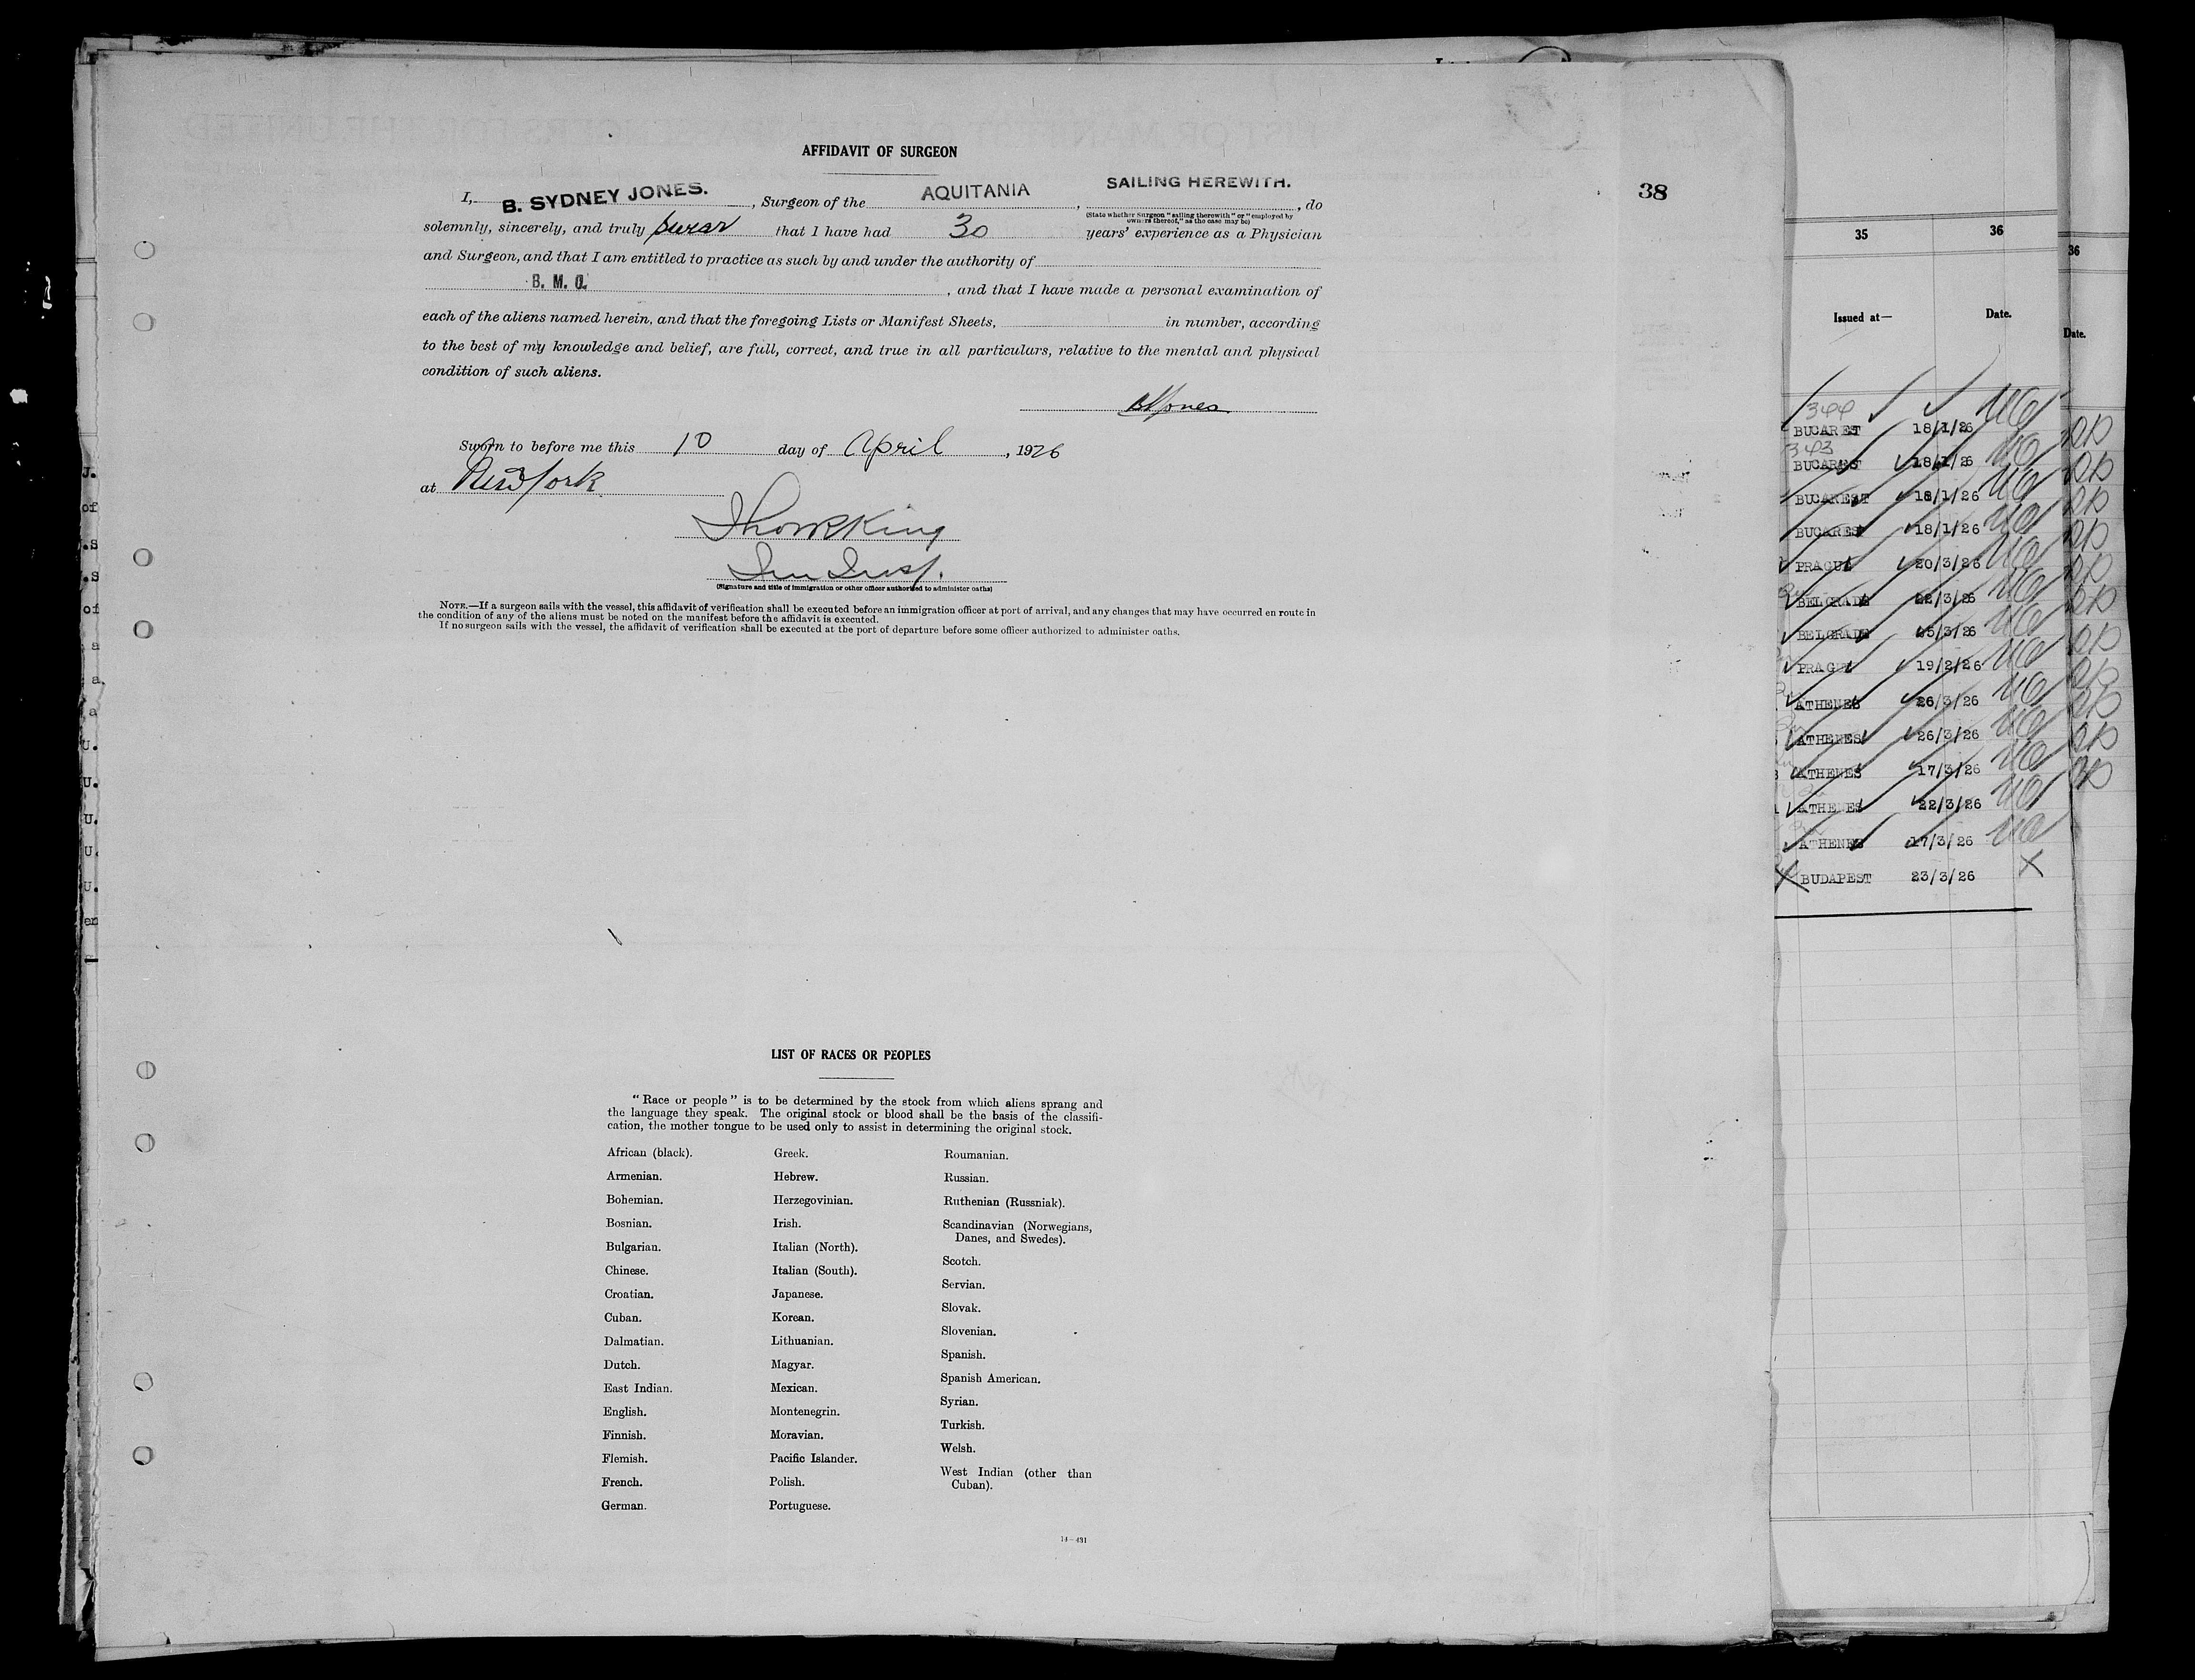 AFFIDAVIT OF SURGEON
I, B. SYDNEY JONES. , Surgeon of the AQUITANIA , SAILING HEREWITH. , do
(State whether Surgeon "sailing therewith" or "employed by
owners thereof," as the case may be)
solemnly, sincerely, and truly swear that I have had 30 years' experience as a Physician
and Surgeon, and that I am entitled to practice as such by and under the authority of
B. M. C. , and that I have made a personal examination of
each of the aliens named herein, and that the foregoing Lists or Manifest Sheets, in number, according
to the best of my knowledge and belief, are full, correct, and true in all particulars, relative to the mental and physical
condition of such aliens.
BSJones
Sworn to before me this 10 day of April , 1926
at New York
King
Imm Insp.
(Signature and title of immigration or other officer authorized to administer oaths)
NOTE.—If a surgeon sails with the vessel, this affidavit of verification shall be executed before an immigration officer at port of arrival, and any changes that may have occurred en route in
the condition of any of the aliens must be noted on the manifest before the affidavit is executed.
If no surgeon sails with the vessel, the affidavit of verification shall be executed at the port of departure before some officer authorized to administer oaths.
LIST OF RACES OR PEOPLES
"Race or people" is to be determined by the stock from which aliens sprang and
the language they speak. The original stock or blood shall be the basis of the classifi-
cation, the mother tongue to be used only to assist in determining the original stock.
African (black).
Armenian.
Bohemian.
Bosnian.
Bulgarian.
Chinese.
Croatian.
Cuban.
Dalmatian.
Dutch.
East Indian.
English.
Finnish.
Flemish.
French.
German.
Greek.
Hebrew.
Herzegovinian.
Irish.
Italian (North).
Italian (South).
Japanese.
Korean.
Lithuanian.
Magyar.
Mexican.
Montenegrin.
Moravian.
Pacific Islander.
Polish.
Portuguese.
Roumanian.
Russian.
Ruthenian (Russniak).
Scandinavian (Norwegians,
Danes, and Swedes).
Scotch.
Servian.
Slovak.
Slovenian.
Spanish.
Spanish American.
Syrian.
Turkish.
Welsh.
West Indian (other than
Cuban).
14—431
38
35 36
Issued at— Date.
344
BUCAREST 18/1/26
343
BUCAREST 18/1/26
BUCAREST 18/1/26
BUCAREST 18/1/26
PRAGUE 20/3/26
BELGRADE 22/3/26
BELGRADE 25/3/26
PRAGUE 19/2/26
ATHENES 26/3/26
ATHENES 26/3/26
ATHENES 17/3/26
ATHENES 22/3/26
ATHENES 17/3/26
BUDAPEST 23/3/26
36
Date.
J.
of
.S
.S
of
a
a
a
U.
U.
U.
U.
U.
en